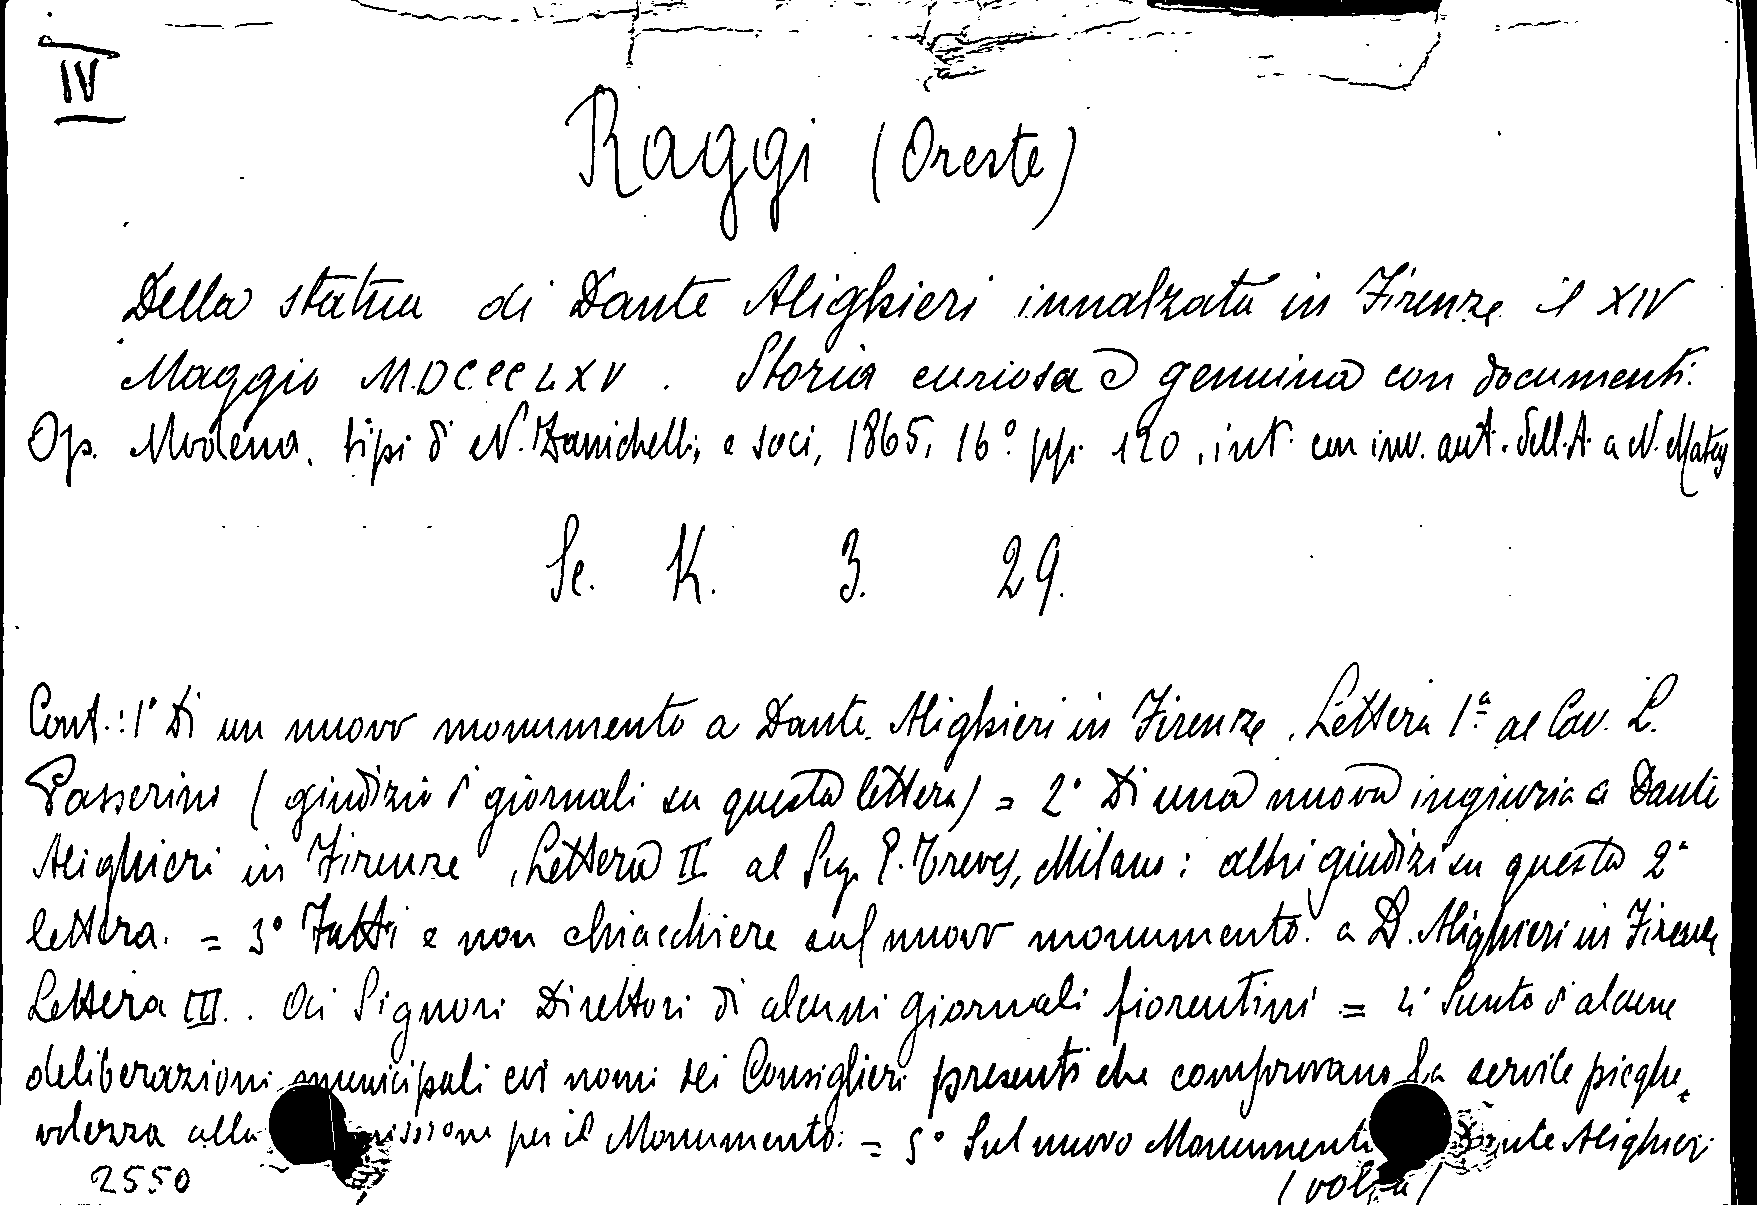 IV
Raggi (Oreste)
Della statua di Dante Alighieri innalzata in Firenze il XIV
Maggio MDCCCLXV. Storia curiosa e genuina con documenti.
Op. Modena, tipi di N. Zanichelli, e soci, 1865, 16° pp. 120, int. con inv. aut. dell'A. a N.
Se. K. 3. 29.
Cont.: 1° Di un nuovo monumento a Dante Alighieri in Firenze. Lettera 1ª al Cav. L.
Passerini (giudizio di giornali su questa lettera) = 2° Di una nuova ingiuria a Dante
Alighieri in Firenze, Lettera II al Sig. E. Treves, Milano: altri giudizi su questa 2ª
lettera. = 3° Fatti e non chiacchiere sul nuovo monumento a D. Alighieri in Firenze
Lettera III. Ai Signori Direttori di alcuni giornali fiorentini = 4° Sunto di alcune
deliberazioni municipali coi nomi dei Consiglieri presenti che comprovano la servile pieghe-
volezza alla missione per il Monumento: = 5° Sul nuovo Monumento Dante Alighieri
2550 (volta)